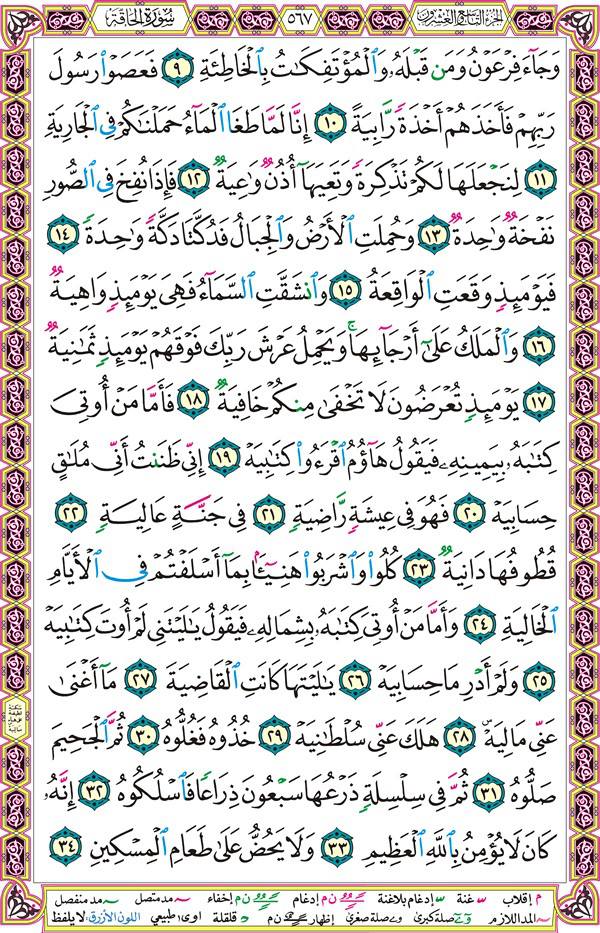 الجزء التاسع والعشرون
٥٦٧
سورة الحاقة
وَجَآءَ فِرْعَوْنُ وَمَن قَبْلَهُۥ وَٱلْمُؤْتَفِكَٰتُ بِٱلْخَاطِئَةِ ٩ فَعَصَوْا۟ رَسُولَ
رَبِّهِمْ فَأَخَذَهُمْ أَخْذَةً رَّابِيَةً ١٠ إِنَّا لَمَّا طَغَا ٱلْمَآءُ حَمَلْنَٰكُمْ فِى ٱلْجَارِيَةِ
١١ لِنَجْعَلَهَا لَكُمْ تَذْكِرَةً وَتَعِيَهَآ أُذُنٌ وَٰعِيَةٌ ١٢ فَإِذَا نُفِخَ فِى ٱلصُّورِ
نَفْخَةٌ وَٰحِدَةٌ ١٣ وَحُمِلَتِ ٱلْأَرْضُ وَٱلْجِبَالُ فَدُكَّتَا دَكَّةً وَٰحِدَةً ١٤
فَيَوْمَئِذٍ وَقَعَتِ ٱلْوَاقِعَةُ ١٥ وَٱنشَقَّتِ ٱلسَّمَآءُ فَهِىَ يَوْمَئِذٍ وَاهِيَةٌ
١٦ وَٱلْمَلَكُ عَلَىٰٓ أَرْجَآئِهَا ۚ وَيَحْمِلُ عَرْشَ رَبِّكَ فَوْقَهُمْ يَوْمَئِذٍ ثَمَٰنِيَةٌ
١٧ يَوْمَئِذٍ تُعْرَضُونَ لَا تَخْفَىٰ مِنكُمْ خَافِيَةٌ ١٨ فَأَمَّا مَنْ أُوتِىَ
كِتَٰبَهُۥ بِيَمِينِهِۦ فَيَقُولُ هَآؤُمُ ٱقْرَءُوا۟ كِتَٰبِيَهْ ١٩ إِنِّى ظَنَنتُ أَنِّى مُلَٰقٍ
حِسَابِيَهْ ٢٠ فَهُوَ فِى عِيشَةٍ رَّاضِيَةٍ ٢١ فِى جَنَّةٍ عَالِيَةٍ ٢٢
قُطُوفُهَا دَانِيَةٌ ٢٣ كُلُوا۟ وَٱشْرَبُوا۟ هَنِيٓـًٔۢا بِمَآ أَسْلَفْتُمْ فِى ٱلْأَيَّامِ
ٱلْخَالِيَةِ ٢٤ وَأَمَّا مَنْ أُوتِىَ كِتَٰبَهُۥ بِشِمَالِهِۦ فَيَقُولُ يَٰلَيْتَنِى لَمْ أُوتَ كِتَٰبِيَهْ
٢٥ وَلَمْ أَدْرِ مَا حِسَابِيَهْ ٢٦ يَٰلَيْتَهَا كَانَتِ ٱلْقَاضِيَةَ ٢٧ مَآ أَغْنَىٰ
عَنِّى مَالِيَهْ ۜ ٢٨ هَلَكَ عَنِّى سُلْطَٰنِيَهْ ٢٩ خُذُوهُ فَغُلُّوهُ ٣٠ ثُمَّ ٱلْجَحِيمَ
صَلُّوهُ ٣١ ثُمَّ فِى سِلْسِلَةٍ ذَرْعُهَا سَبْعُونَ ذِرَاعًا فَٱسْلُكُوهُ ٣٢ إِنَّهُۥ
كَانَ لَا يُؤْمِنُ بِٱللَّهِ ٱلْعَظِيمِ ٣٣ وَلَا يَحُضُّ عَلَىٰ طَعَامِ ٱلْمِسْكِينِ ٣٤
م إقلاب غنة إدغام بلاغنة ن م إدغام ن م إخفاء مد متصل مد منفصل
المد اللازم صلة كبرى صلة صغرى إظهار ن م قلقلة اوى طبيعي اللون الأزرق: لا يلفظ